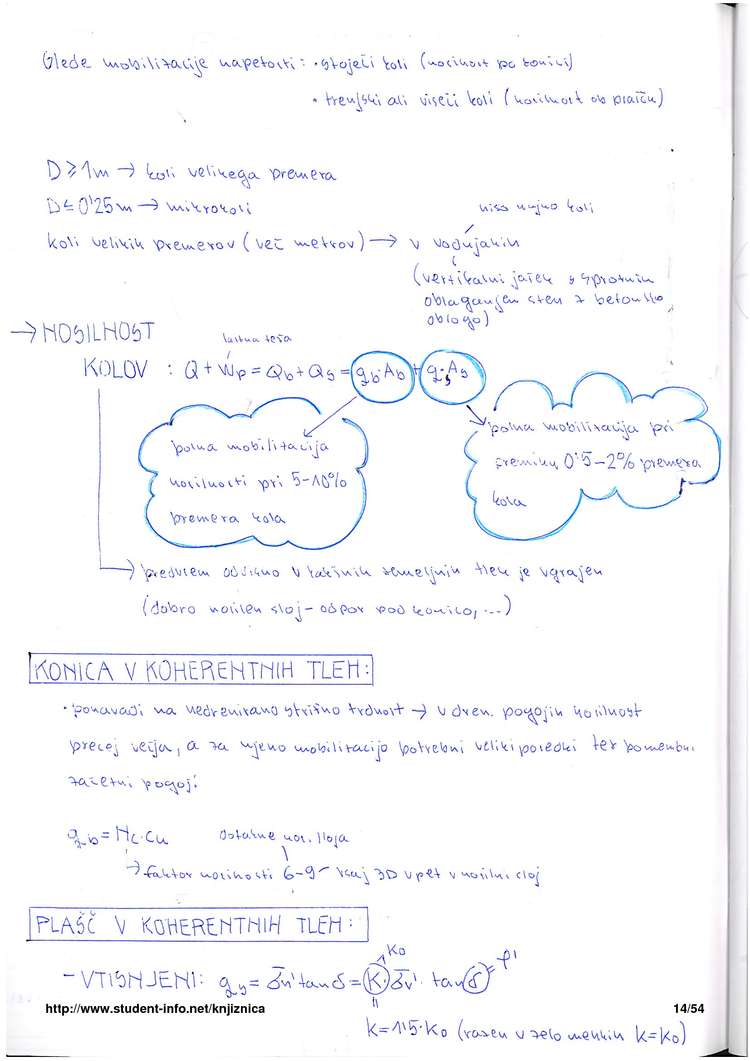 Glede mobilizacije napetosti: • stoječi koli (nosilnost po konici)
• trenjski ali viseči koli (nosilnost ob plašču)
D ≥ 1m → koli velikega premera
D ≤ 0'25m → mikrokoli
niso nujno koli
koli velikih premerov (več metrov) → v vodnjakih
(vertikalni jašek s sprotnim
oblaganjem sten z betonsko
oblogo)
→ NOSILNOST
lastna teža
KOLOV : Q + Wp = Qb + Qs = qb·Ab + qs·As
polna mobilizacija
nosilnosti pri 5-10%
premera kola
polna mobilizacija pri
premiku 0'5-2% premera
kola
→ predvsem odvisno v kakšnih zemeljnih tleh je vgrajen
(dobro nosilen sloj - odpor pod konico, ...)
KONICA V KOHERENTNIH TLEH:
• ponavadi na nedrenirano strižno trdnost → v dren. pogojih nosilnost
precej večja, a za njeno mobilizacijo potrebni veliki posedki ter pomembni
začetni pogoji
qb = Nc·cu
dotakne nos. sloja
→ faktor nosilnosti 6-9 - vsaj 3D vpet v nosilni sloj
PLAŠČ V KOHERENTNIH TLEH:
K0
- VTISNJENI: qs = σn' tan δ = K·σv'· tan δ = φ'
K = 1'5·K0 (razen v zelo mehkih K = K0)
http://www.student-info.net/knjiznica
14/54